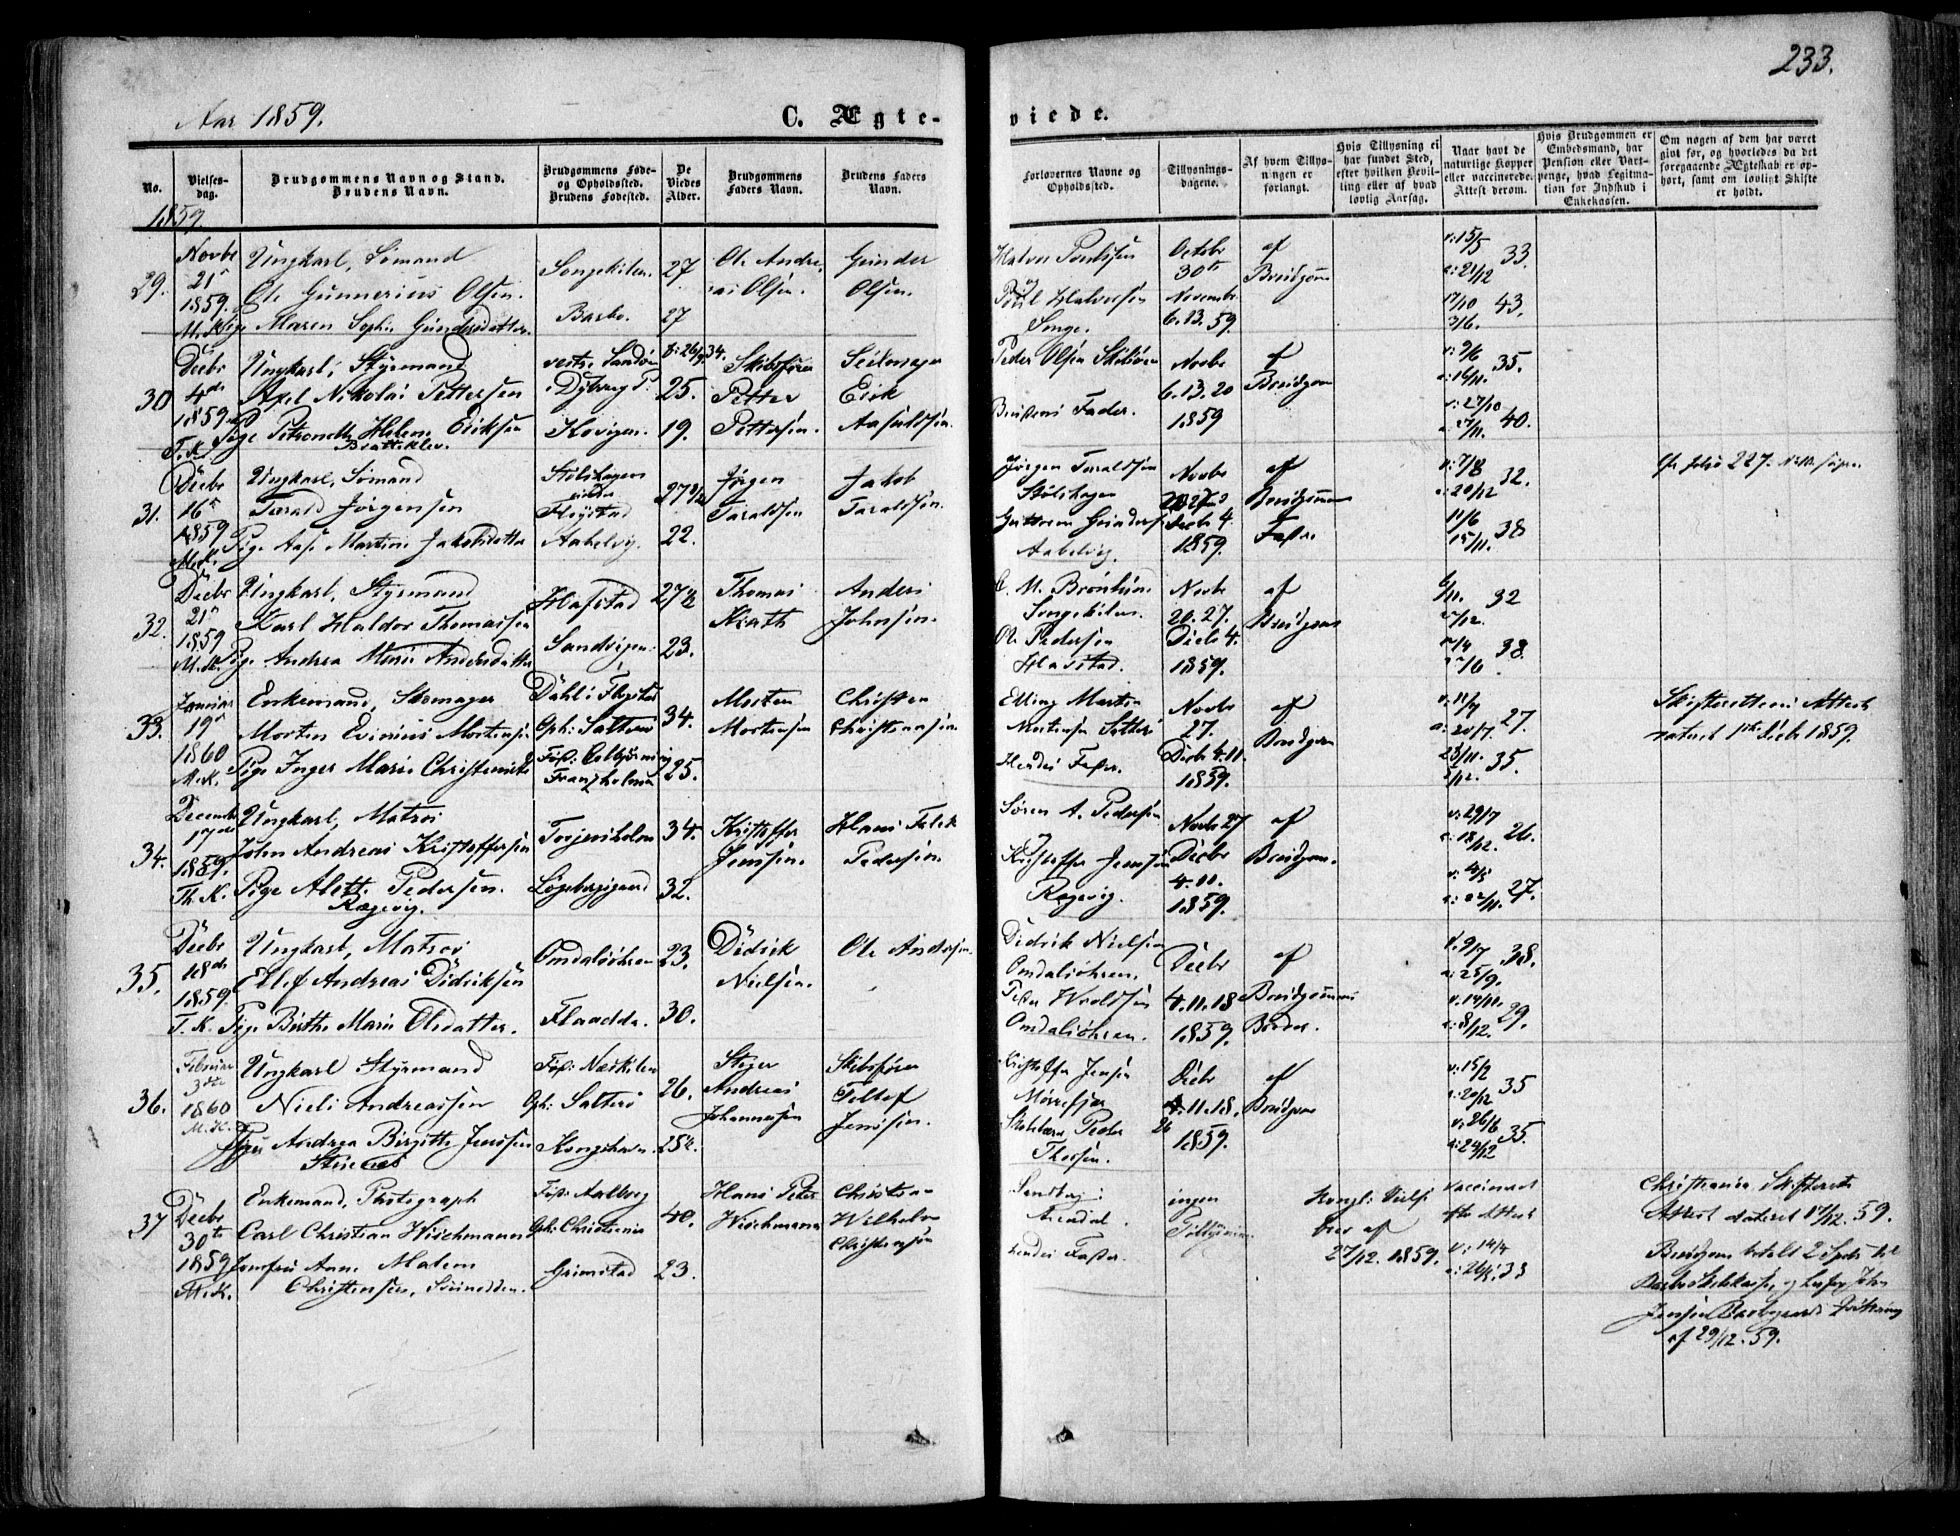 233.
Aar 1859.
C. Ægte-
viede.
No.
Vielses-
dag.
Brudgommens Navn og Stand.
Brudens Navn.
Brudgommens Føde-
og Opholdssted.
Brudens Fødested.
De
Viedes
Alder.
Brudgommens
Faders Navn.
Brudens Faders
Navn.
Forlovernes Navne og
Opholdssted.
Tillysnings-
dagene.
Af hvem Tillys-
ningen er
forlangt.
Hvis Tillysning ei
har fundet Sted,
efter hvilken Bevil-
ling eller af hvad
lovlig Aarsag.
Naar havt de
naturlige Kopper
eller vaccinerede.
Attest derom.
Hvis Brudgommen er
Embedsmand, har
Pension eller Vart-
penge, hvad Legitima-
tion for Indskud i
Enkekassen.
Om nogen af dem har været
givt før, og hvorledes da det
foregaaende Ægteskab er op-
hørt, samt om lovligt Skifte
er holdt.
1859.
29.
Novbr
21
1859.
M.K.
Ungkarl, Sømand
Ole Gunnerius Olsen.
Pige Maren Sophie Gundersdatter.
Songekilen.
Barbo.
27
27
Ole Andre-
as Olsen.
Gunder
Olsen.
Halvor Poulssen
Poul Halvorsen
Songe.
Octobr
30te
Novembr
6. 13. 59
af
Brudgom
v: 15/5
a: 21/12 33.
17/10
3/6. 43.
30
Decbr
4de
1859
T.K.
Ungkarl, Styrmand
Axel Nikolai Pettersen
Pige Petronelle Helene Eriksen
Bratteklev.
vestr. Sandøen
i Dybvaag P:
Kovigen.
f: 26/9 34.
25.
19.
Skibsfører
Petter
Pettersen.
Seilmager
Erik
Aasuldsen.
Peder Olsen
Brudens Fader.
Novbr
6. 13. 20
1859
af
Brudgom
v: 9/6
a: 16/11. 35.
v: 27/10
a: 27/11. 40.
31.
Decbr
16
1859
M.K.
Ungkarl, Sømand
Tarald Jørgensen
Pige Aase Martine Jakobsdatter
Stølshagen
under
Fløystad
Aabelvig.
27 3/4
22.
Jørgen
Taraldsen
Jakob
Taraldsen.
Jørgen Taraldsen
Stølshagen
Guttorm Gunders.
Aabelvig.
Novbr
20 27
Decbr 4.
1859.
af
Brudgommens
Fader.
v: 7/8
a: 20/12 32.
11/6
15/11. 38
cfr folio 227.
32.
Decbr
21
1859
M.K.
Ungkarl, Styrmand
Karl Haldor Thomassen
Pige Andrea Marie Andersdatter
Hafstad
Sandvigen
27 1/2
23.
Thomas
Krath
Anders
Johnsen.
C. M. Bronlund
Songekilen
Ole Pedersen
Hafstad.
Novbr
20. 27.
Decbr 4.
1859.
af
Brudgom
6/11. 32
38.
33.
Januar
19
1860
M.K.
Enkemand, Skomager
Morten Evinius Mortensen
Pige Inger Marie Christensd.
Dahl i Fløistad
Oph: Saltrø
Franzholmen
34.
25.
Morten
Mortensen
Christen
Christensen.
Elling Martin
Mortensen Saltrø
Hendes Fader.
Novbr
27.
Decbr 4. 11.
1859.
af
Brudgom
v: 11/7
a: 20/7 27.
23/11.
5/12. 35.
Skifterettens Attest
dateret 1ste Decbr 1859.
34.
Decembr
17de
1859.
Th. K.
Ungkarl, Matros
John Andreas Kristoffersen
Pige Alett. Pedersen.
Rægevig.
Torjensholmen
34.
32.
Kristoffer
Jenssen.
Hans Falck
Pedersen.
Søren A. Pedersen
Kristoffer Jenssen
Rægevig.
Novbr 27
Decbr
4. 11.
1859.
af
Brudgom.
v: 29/7
a: 18/12. 26.
a: 22/11. 27.
35.
Decbr
18de
1859.
T. K.
Ungkarl, Matros
Ellef Andreas Didriksen
Pige Birthe Marie Olsdatter.
Omdalsøhren
Flaadda.
23.
30.
Didrik
Nielsen.
Ole Andersen.
Didrik Nielsen
Omdalsøhren.
Peder Woldsen
Omdalsøhren.
Decbr
4. 11. 18
1859.
af
Brudgommens
Broder.
v: 9/7
a: 25/9. 38.
v: 14/11.
a: 8/12. 29.
36.
Februar
3die
1860
M.K.
Ungkarl Styrmand
Niels Andreassen
Pige Andrea Birgitte Jenssen
Strengs
Fød: Neskilen
Oph: Saltrø
Kongshavn.
26.
25 1/2.
Andreas
Johannesen
Skibsfører
Tellef
Jenssen.
Kristoffer Jensen
Mørrefjær
Peder
Thorsen.
Decbr
4. 11. 18.
1859.
af
Brudgom
v: 15/2
a: 20/12 35
v: 26/6
a: 24/12 35.
37
Decbr
30te
1859
M.K.
Enkemand, Photograph
Carl Christian Wischmann
Jomfru Anne Malene
Christensen,
Fød: Aalborg
Oph: Christiania
Grimstad
40.
23.
Hans Peter
Wischmann
Christian
Wilhelm
Christensen
Sandberg i
Arendal.
Hendes Fader.
ingen
Tillysning
Kongl:
brev af
27/12. 1859.
vaccineret
efter Attest
v: 14/4
a: 26/5. 33
Christiania Skifterets
Attest dateret 17/12. 59.
Brudgom betalt 2 Spdlr til
Barbo
Jensen
af 29/12. 59.